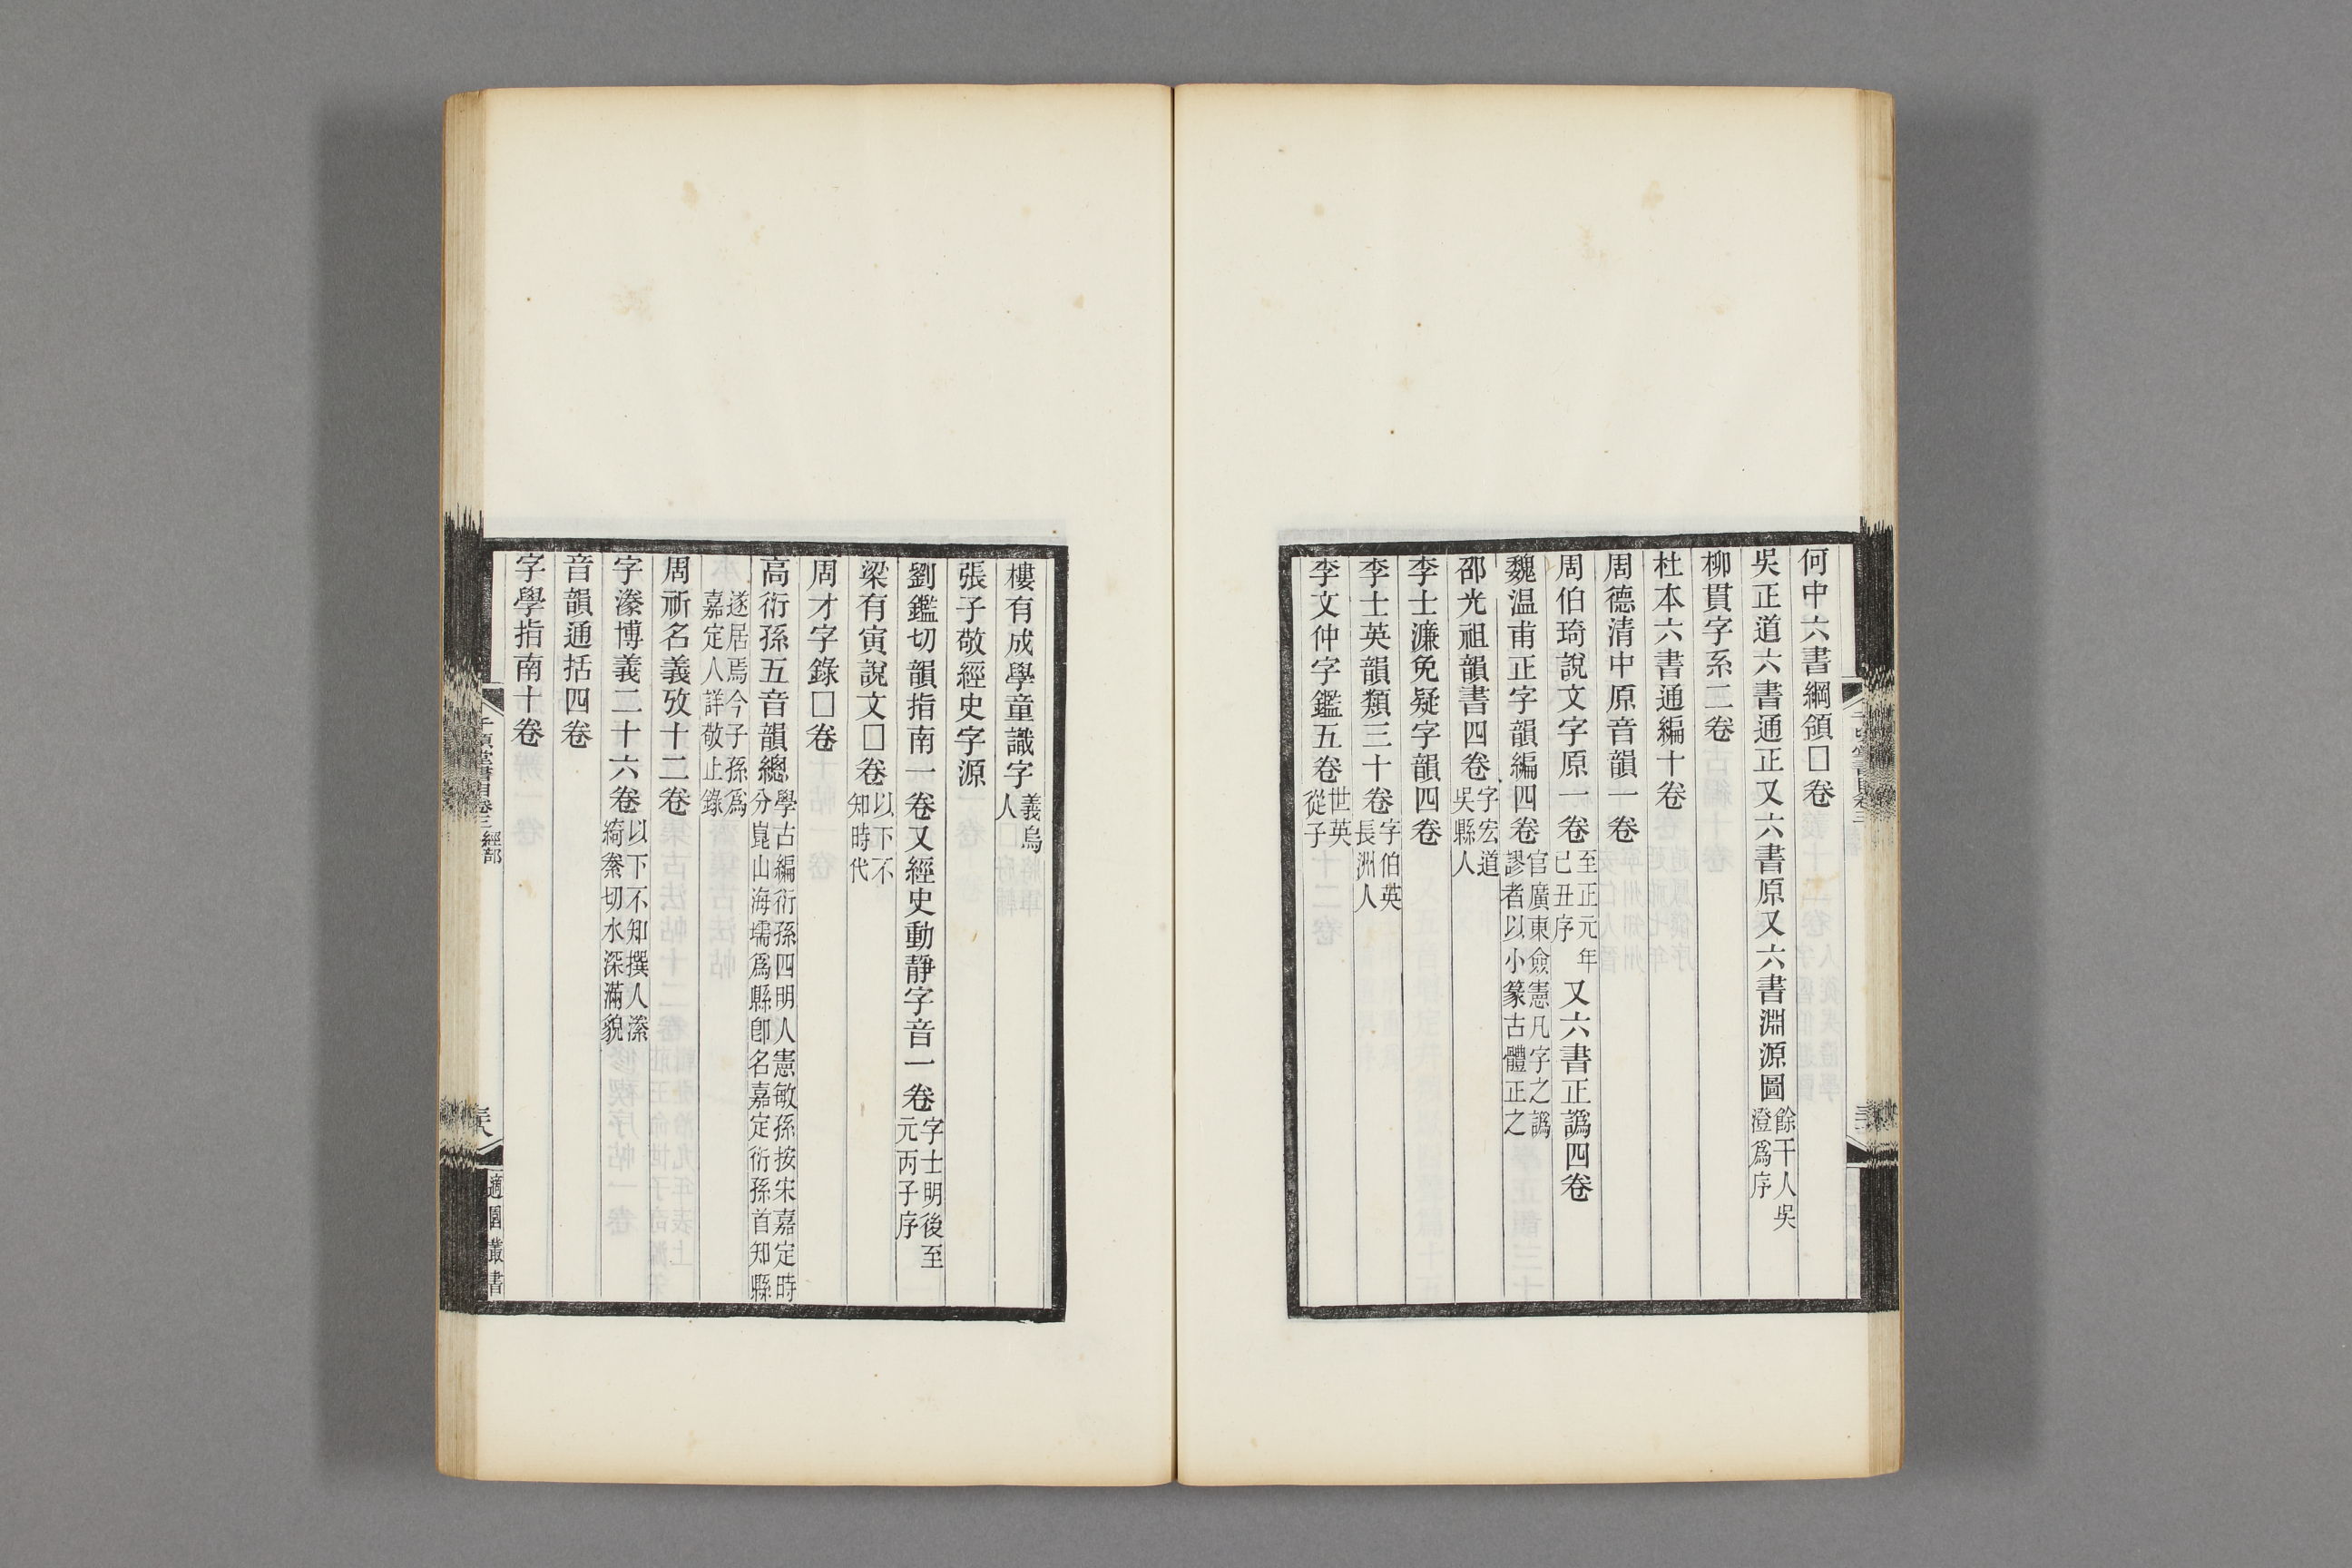 何中六書綱領□卷
吳正道六書通正又六書原又六書淵源圖餘干人吳澄爲序
柳貫字系二卷
杜本六書通編十卷
周德清中原音韻一卷
周伯琦說文字原一卷至正元年己丑序又六書正譌四卷
魏温甫正字韻編四卷官廣東僉憲凡字之譌謬者以小篆古體正之
邵光祖韻書四卷字宏道吳縣人
李士濂免疑字韻四卷
李士英韻類三十卷字伯英長洲人
李文仲字鑑五卷世英從子
樓有成學童識字義烏人
張子敬經史字源
劉鑑切韻指南一卷又經史動靜字音一卷字士明後至元丙子序
梁有寅說文□卷以下不知時代
周才字錄□卷
高衍孫五音韻總學古編衍孫四明人憲敏孫按宋嘉定時分崑山海壖爲縣卽名嘉定衍孫首知縣
遂居焉今子孫爲嘉定人詳敬止錄
周祈名義攷十二卷
字濴博義二十六卷以下不知撰人濴縈切水深滿貌
音韻通括四卷
字學指南十卷
千頃堂書目卷三 經部
三八
適園叢書